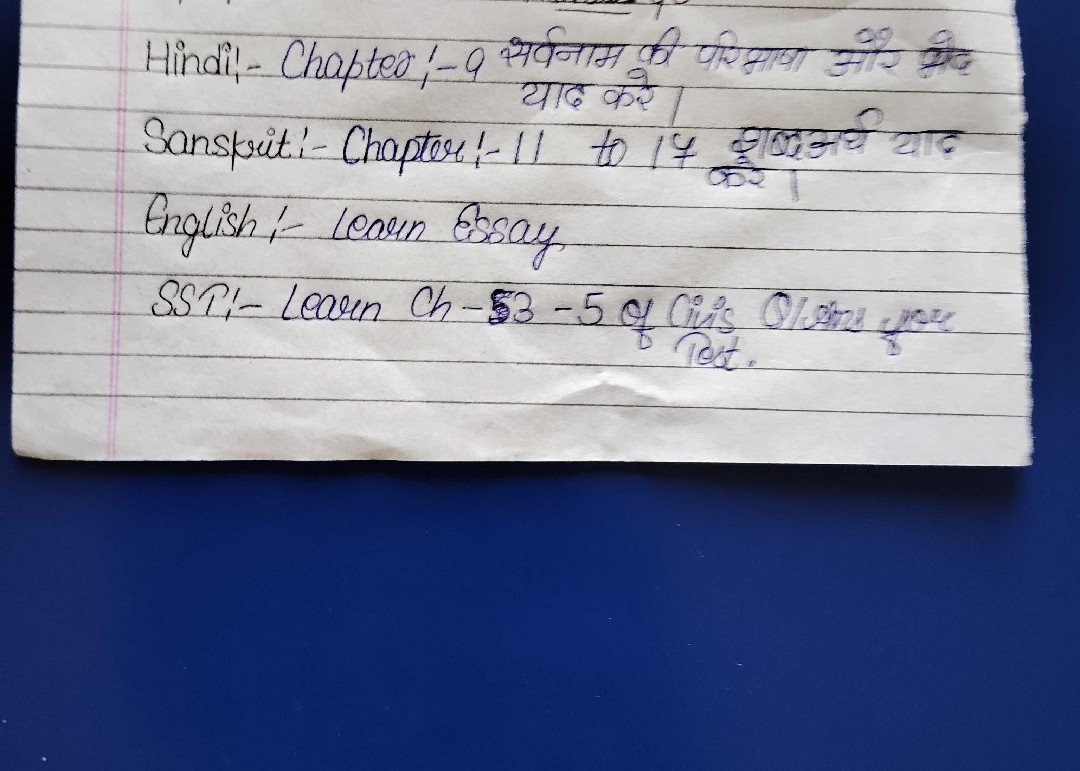 Hindi!- Chapter!-9 सर्वनाम की परिभाषा और भेद
याद करे।
Sanskrit!- Chapter!-11 to 17 शब्दअर्थ याद
करे।
English!- Learn Essay
SST!- Learn Ch-53-5 of Civis
Test.